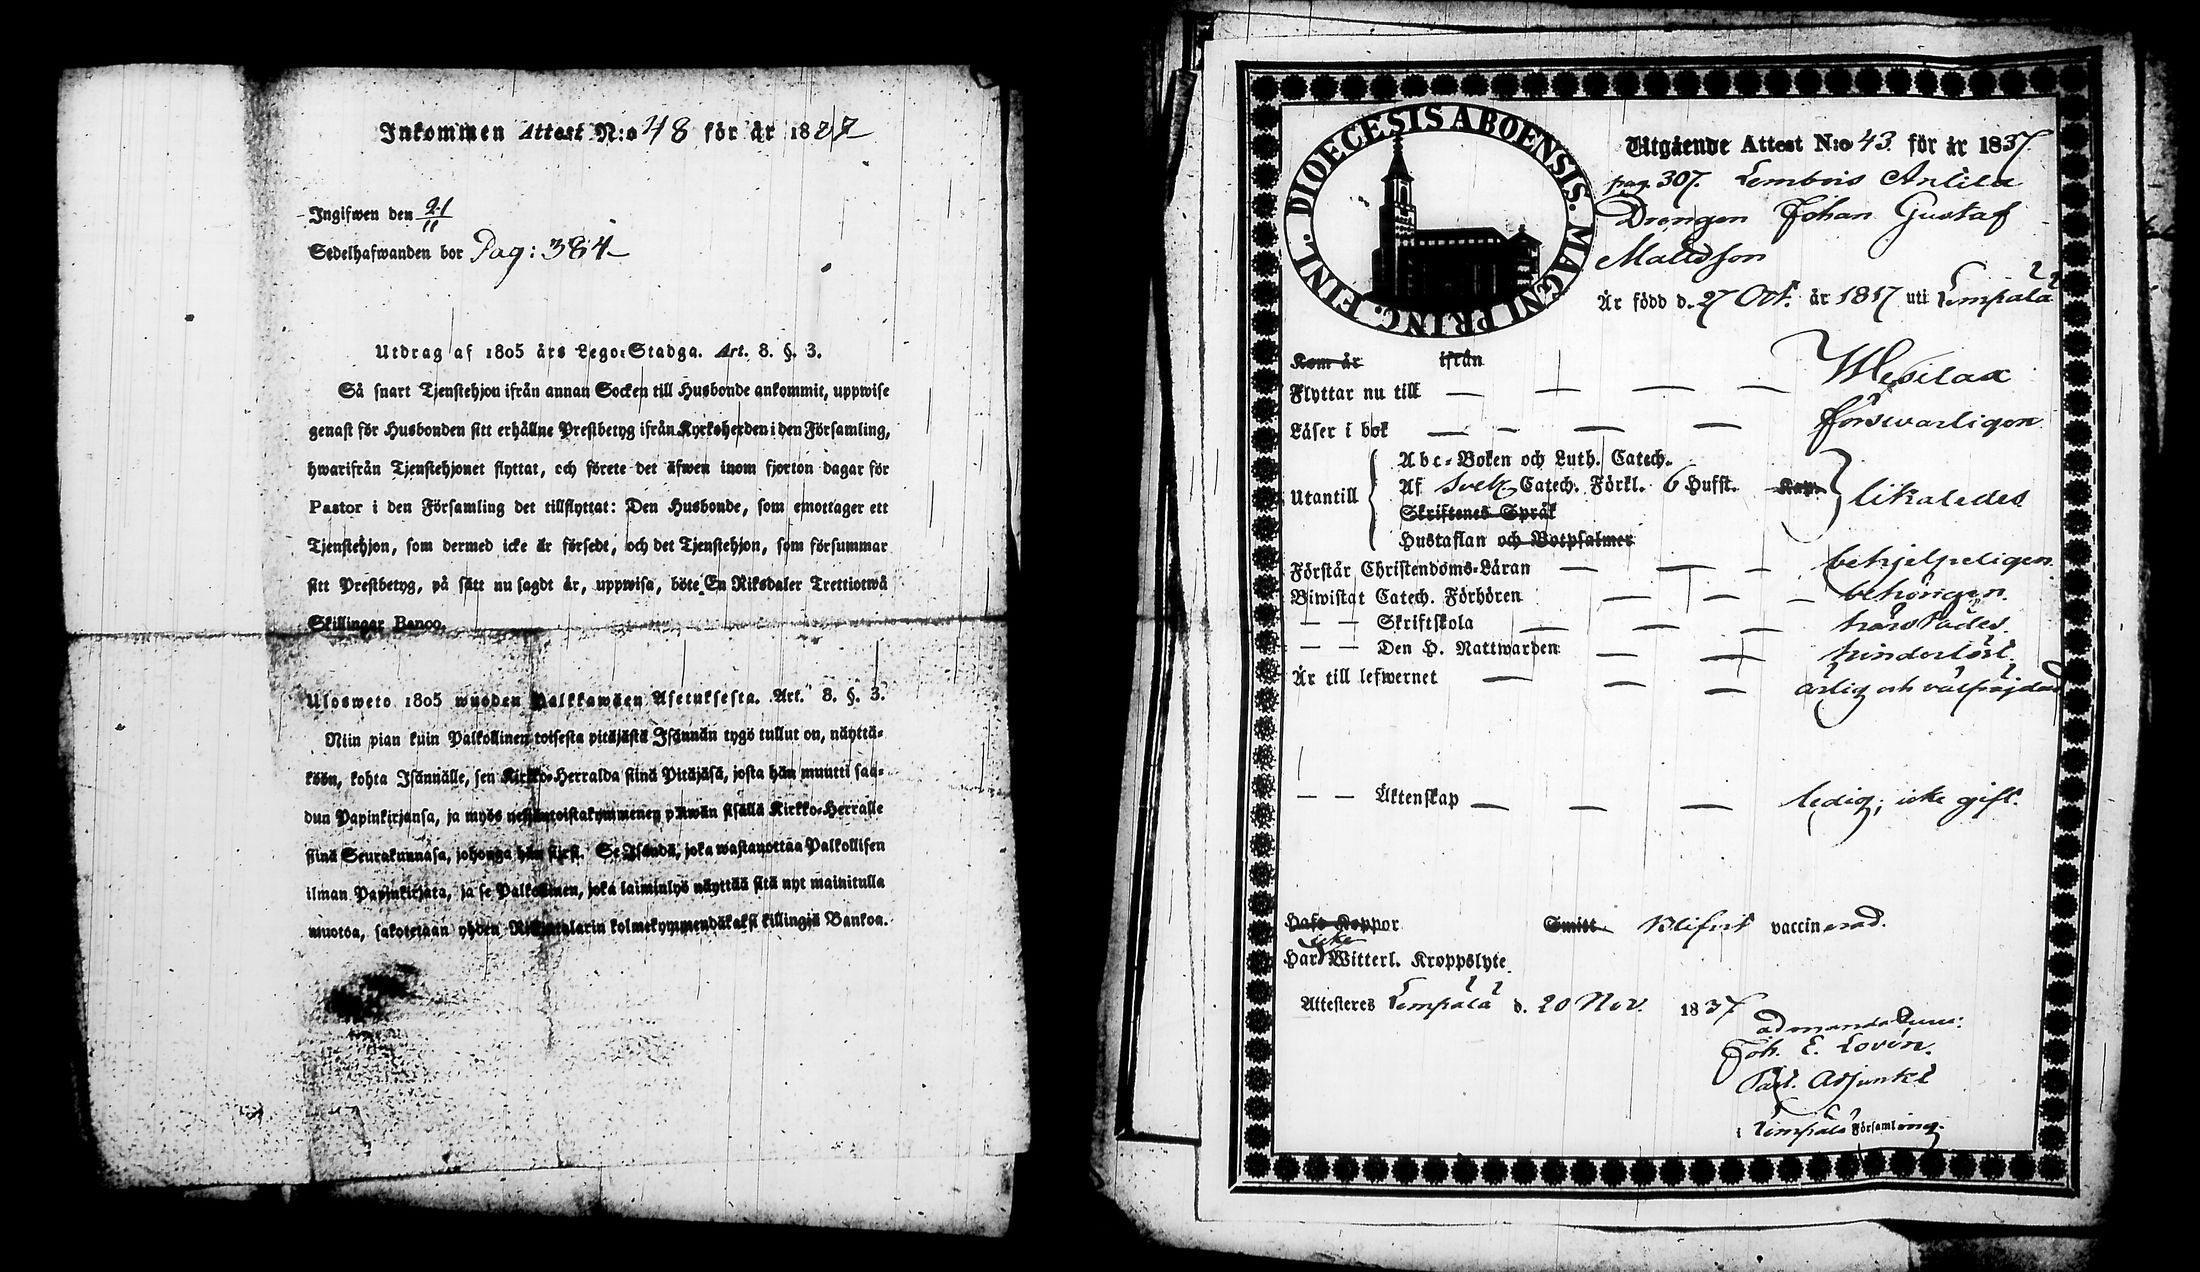 Inkommen Attest N:o 48 för år 1837
Ingifwen den 21/11
Sedelhafwanden bor Pag: 384
Utdrag af 1805 års Lego-Stadga. Art. 8. §. 3.
Så snart Tjenstehjon ifrån annan Socken till Husbonde ankommit, uppwise
genast för Husbonden sitt erhållne Prestbetyg ifrån Kyrkoherden i den Församling,
hwarifrån Tjenstehjonet flyttat, och förete det äfwen inom fjorton dagar för
Pastor i den Församling det tillflyttat: Den Husbonde, som emottager ett
Tjenstehjon, som dermed icke är försedt, och det Tjenstehjon, som försummar
sitt Prestbetyg, på sätt nu sagdt är, uppwisa, böte En Riksdaler Trettiotwå
Skillingar Banco.
Ulosweto 1805 wuoden Palkkawäen Asetuksesta. Art. 8. §. 3.
Niin pian kuin Palkollinen toisesta pitäjästä Isännän tygö tullut on, näyttä-
köön, kohta Isännälle, sen Kirkko-Herralda siinä Pitäjäsä, josta hän muutti saa-
dun Papinkirjansa, ja myös neljäntoistakymmenen päiwän sisällä Kirkko-Herralle
siinä Seurakunnasa, johonga hän siirsi. Se Isändä, joka wastanottaa Palkollisen
ilman Papinkirjata, ja se Palkollinen, joka laiminlyö näyttää sitä nyt mainitulla
muotoa, sakotetaan yhden Riksdalarin kolmekymmendäkaksi killingiä Bankoa.
DIOECESIS ABOENSIS. MAGNI PRINC. FINL.
Utgående Attest N:o 43 för år 1837
pag. 307. Lembois Anlila
Drengen Johan Gustaf
Mattsson
Är född d. 27 Oct. år 1817 uti Lempälä
Kom år ifrån
Flyttar nu till Wesilax
Läser i bok försvarligen
Abc-Boken och Luth. Catech.
Utantill Af Sveb. Catech. Förkl. 6 Hufst. Kap. likaledes
Skriftenes Språk
Hustaflan och Botpsalmer
Förstår Christendoms-Läran behjelpeligen
Biwistat Catech. Förhören behörigen
— — Skriftskola härstädes
— — Den H. Nattwarden hinderlöst
Är till lefwernet ärlig och välfräjdad
— — Äktenskap ledig, icke gift.
Haft Koppor Smitt. Blifvit vaccinerad.
Har icke Witterl. Kroppslyte
Attesteres Lempälä d. 20 Nov. 1837
ad mandatum:
Joh. E. Lovén.
Past. Adjunkt
i Lempälä Församling.